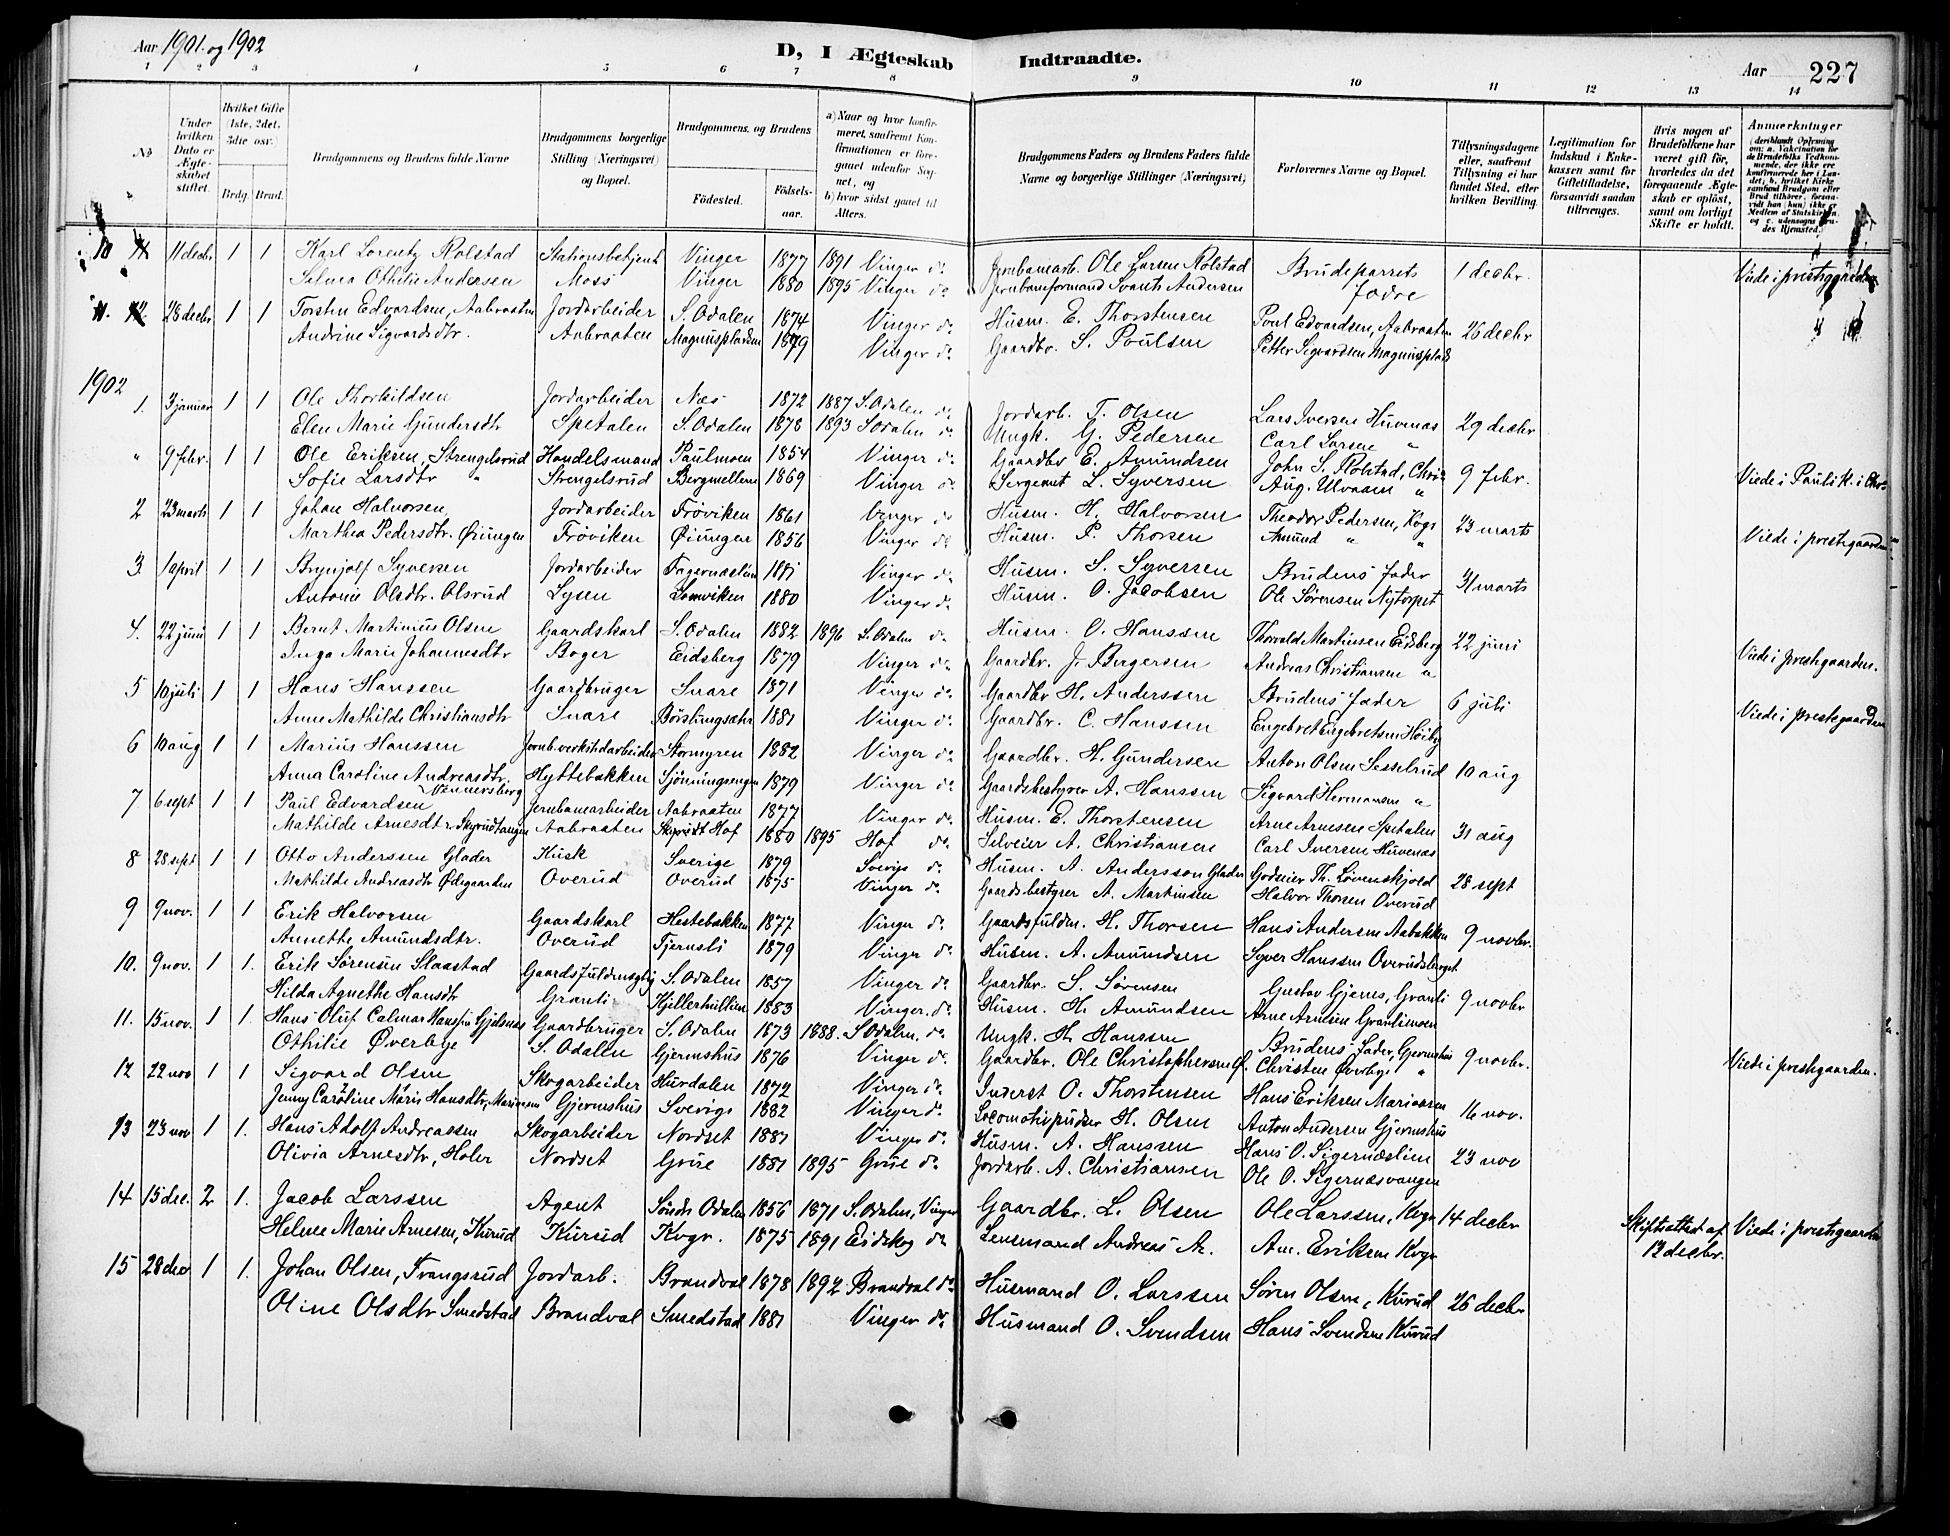 Aar 1901 og 1902
D, I Ægteskab Indtraadte.
Aar 227
1 2 3 4 5 6 7 8 9 10 11 12 13 14
No
Under hvilken Dato er Ægteskabet stiftet.
Hvilket Gifte (1ste, 2det, 3die osv.)
Brdg. Brud.
Brudgommens og Brudens fulde Navne
Brudgommens borgerlige Stilling (Næringsvei) og Bopæl.
Brudgommens og Brudens
Fødested. Fødselsaar.
a) Naar og hvor konfirmeret, saafremt Konfirmationen er foregaaet udenfor Sognet, og b) hvor sidst gaaet til Alters.
Brudgommens Faders og Brudens Faders fulde Navne og borgerlige Stillinger (Næringsvei)
Forlovernes Navne og Bopæl.
Tillysningsdagene eller, saafremt Tillysning ei har fundet Sted, efter hvilken Bevilling.
Legitimation for Indskud i Enkekassen samt for Giftetilladelse, forsaavidt saadan tiltrænges.
Hvis nogen af Brudefolkene har været gift før, hvorledes da det foregaaende Ægteskab er opløst, samt om lovligt Skifte er holdt.
Anmærkninger (deriblandt Oplysning om: a. Vakcination for de Brudefolks Vedkommende, der ikke ere konfirmerede her i Landet; b. hvilket Kirkesamfund Brudgom eller Brud tilhører, forsaavidt han (hun) ikke er Medlem af Statskirken, og c. udensogns Brudes Hjemsted.)
10 11 decbr 1 1 Karl Lorentz Rolstad Stationsbetjent Vinger 1877 1891 Vinger do Jernbanearb. Ole Larsen Rolstad Brudeparrets 1 decbr. Viede i prestegaarden
Selma Othilie Andersen Moss Vinger 1880 1895 Vinger do Jernbaneformand Svante Andersen fædre
11. 28 decbr 1 1 Torsten Edvardsen, Aabraaten Jordarbeider S. Odalen 1874 Vinger do Husm. E. Thorstensen Poul Edvardsen, Aabraaten 26 decbr
Andrine Sigvardsdtr. Aabraaten Magnuspladsen 1879 Vinger do Gaardbr. S. Poulsen Petter Sigvardsen Magnusplads
1902
1. 3 januar 1 1 Ole Thorkildsen Jordarbeider Næs 1872 1887 S. Odalen do Jordarb. T. Olsen Lars Iversen Huvenæs 29 decbr
Elen Marie Gundersdtr Spetalen S. Odalen 1878 1893 S Odalen do Ungk. G. Pedersen Carl Larsen "
" 9 febr. 1 1 Ole Eriksen, Strengelsrud Handelsmand Paulmoen 1854 Vinger do Gaardbr E. Amundsen John S. Rolstad, Chria 9 febr. Viede i Paulik. i Chr
Sofie Larsdtr " Strengelsrud Bergmellem 1869 Vinger do Sergeant L. Syversen Aug. Ulvaam "
2 23 marts 1 1 Johan Halvorsen, Jordarbeider Frøviken 1861 Vinger do Husm. H. Halvorsen Theodor Pedersen, Kogs 23 marts
Marthea Pedersdtr. Øiungen Frøviken Øiungen 1856 Vinger do Husm. P. Thorsen Amund " " Viede i prestegaarden
3. 1 april 1 1 Brynjolf Syversen Jordarbeider Fagernæslien 1881 Vinger do Husm. S. Syversen Brudens fader 31 marts
Antonie Olsdtr. Olsrud Lysen Lomviken 1880 Vinger do Husm. O. Jacobsen Ole Sørensen Nytorpet
4. 22 juni 1 1 Bernt Martinius Olsen Gaardskarl S. Odalen 1882 1896 S. Odalen do Husm. O. Hanssen Thorvald Martinsen Eidsberg 22 juni
Inga Marie Johannesdtr Boger Eidsberg 1879 Vinger do Gaardbr. J. Bergersen Andreas Christiansen " Viede i prestgaarden.
5 10 juli 1 1 Hans Hanssen Gaardbruger Snare 1871 Vinger do Gaardbr H. Anderssen Brudens fader 6 juli
Anne Mathilde Christiansdtr Snare Børstingsætr 1881 Vinger do Gaardbr. C. Hanssen Engebret Engebretsen Høiby Viede i prestegaarden
6 10 aug 1 1 Marius Hanssen Jernb.verkstdarbeider Stormyren 1882 Vinger do Gaardbr. H. Gundersen Anton Olsen Sesselrud 10 aug
Anna Caroline Andreasdtr. Vennersberg Hyttebakken Sjønningsengen 1879 Vinger do Gaardsbestyrer A. Hanssen Sigvard Hermansen "
7 6 sept 1 1 Paul Edvardsen Jernbanearbeider Aabraaten 1877 Vinger do Husm. E. Thorstensen Arne Arnesen Spetalen 31 aug
Mathilde Arnesdtr. Skyrudtangen Aabraaten Skyrudt Hof 1880 1895 Hof do Selveier A. Christiansen Carl Iversen Huvenæs
8 28 sept 1 1 Otto Anderssen Glader Kusk Sverige 1879 Sverige do Husm. A. Andersson Glader Godseier Th. Løvenskjold 28 sept
Mathilde Andreasdtr Ødegaarden Overud Overud 1875 Vinger do Gaardsbestyrer A. Martinsen Halvor Thorsen Overud
9 9 nov. 1 1. Erik Halvorsen Gaardskarl Hestebakken 1877 Vinger do Gaardsfuldm. H. Thorsen Hans Andersen Aabakken 9 novbr.
Annette Amundsdtr. Overud Tjernsli 1879 Vinger do Husm. A. Amundsen Syver Hanssen Overudsberget
10. 9 nov. 1 1. Erik Sørensen Slaastad Gaardsfuldmægtig S. Odalen 1857 Vinger do Gaardbr. S. Sørensen Gustav Gjems, Granli 9 novbr
Hilda Agnethe Hansdtr Granli Kjillerhultien 1883 Vinger. do Husm. H. Amundsen Arne Arnesen Granlimoen
11. 15 nov. 1 1. Hans Oluf Calmar Hanssen Gjølsnes Gaardbruger S. Odalen 1873 1888. S. Odalen. do Ungk. H. Hanssen Brudens fader, Gjermshus 9 novbr.
Othilie Øverbye S. Odalen Gjermshus 1876 Vinger do Gaardbr. Ole Christophersen Ø. Christen Øverby " Viede i prestgaarden.
12 22 nov 1 1 Sigvard Olsen Skogarbeider Hurdalen 1872 Vinger do Inderst O. Thorstensen Hans Eriksen Mariaasen 16 nov.
Jenny Caroline Maria Hansdtr, Gjermshus Sverige 1882 Vinger do Locomotivpudser H. Olsen Anton Andersen Gjermshus
13 23 nov 1 1. Hans Adolf Andreassen Skogarbeider Nordset 1881 Vinger do Husm. A. Hanssen Hans O. Sigernæslien 23 nov
Olivia Arnesdtr, Holer Nordset Grue 1881 1895 Grue do Jordarb. A. Christiansen Ole O. Sigernæsvangen
14 15 dec. 2 1. Jacob Larssen Agent Søndr Odalen 1856 1871 S. Odalen, Vinger Gaardbr. L. Olsen Ole Larssen, Kvgr 14 decbr Skifteattest af 12 decbr. Viede i prestegaarden
Helene Marie Arnesen, Kurud Kurud Kvgr. 1875 1891 Eidskog do Lensmand Andreas A. Am. Eriksen Kvgr
15 28 dec 1 1. Johan Olsen, Trangsrud Jordarb. Brandval 1878 1892. Brandval do Husmand O. Larssen Søren Olsen, Kurud 26 decbr
Oline Olsdtr Smedstad Brandval Smedstad 1881 Vinger do Husmand O. Svendsen Hans Svendsen Kurud